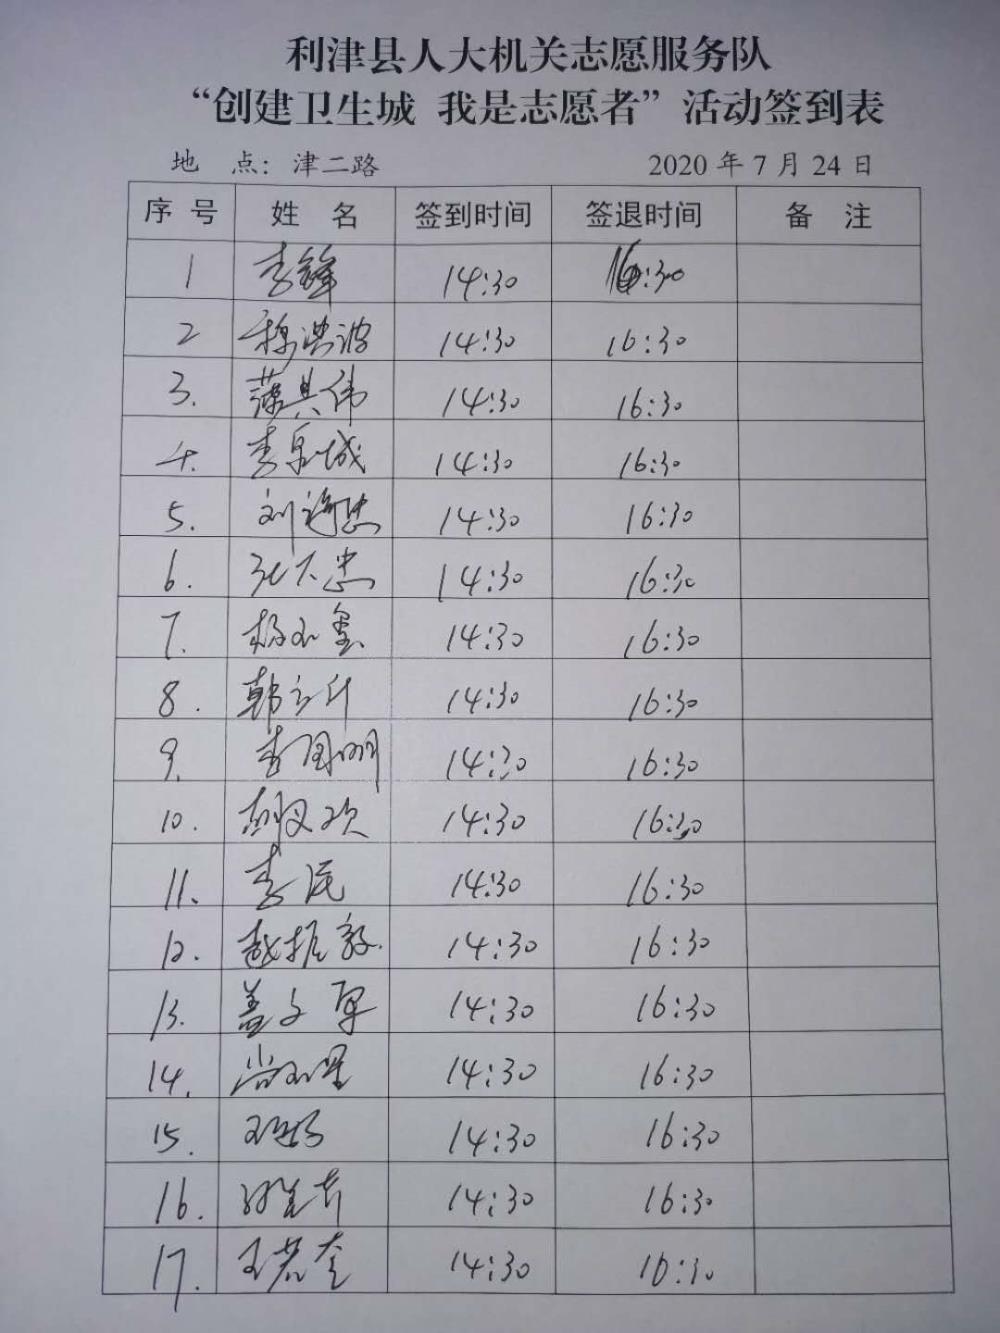 利津县人大机关志愿服务队
“创建卫生城 我是志愿者”活动签到表
地 点：津二路 2020年7月24日
序 号 姓 名 签到时间 签退时间 备 注
1 李锋 14:30 16:30
2 穆洪波 14:30 16:30
3. 薄其伟 14:30 16:30
4. 李泉城 14:30 16:30
5. 刘海忠 14:30 16:30
6. 14:30 16:30
7. 14:30 16:30
8. 韩立升 14:30 16:30
9. 李国明 14:30 16:30
10. 14:30 16:30
11. 李民 14:30 16:30
12. 14:30 16:30
13. 盖文军 14:30 16:30
14. 14:30 16:30
15. 14:30 16:30
16. 14:30 16:30
17. 王若奎 14:30 16:30